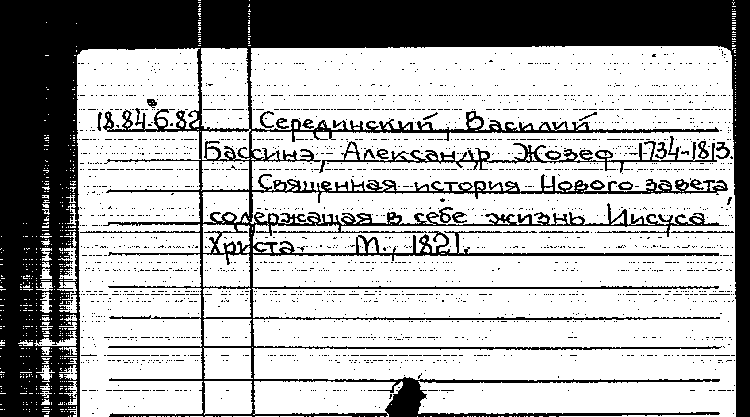 18.84.6.82 Серединский, Василий
Бассинэ, Александр Жозеф, 1734-1813.
Священная история Нового завета,
содержащая в себе жизнь Иисуса
Христа. М., 1821.